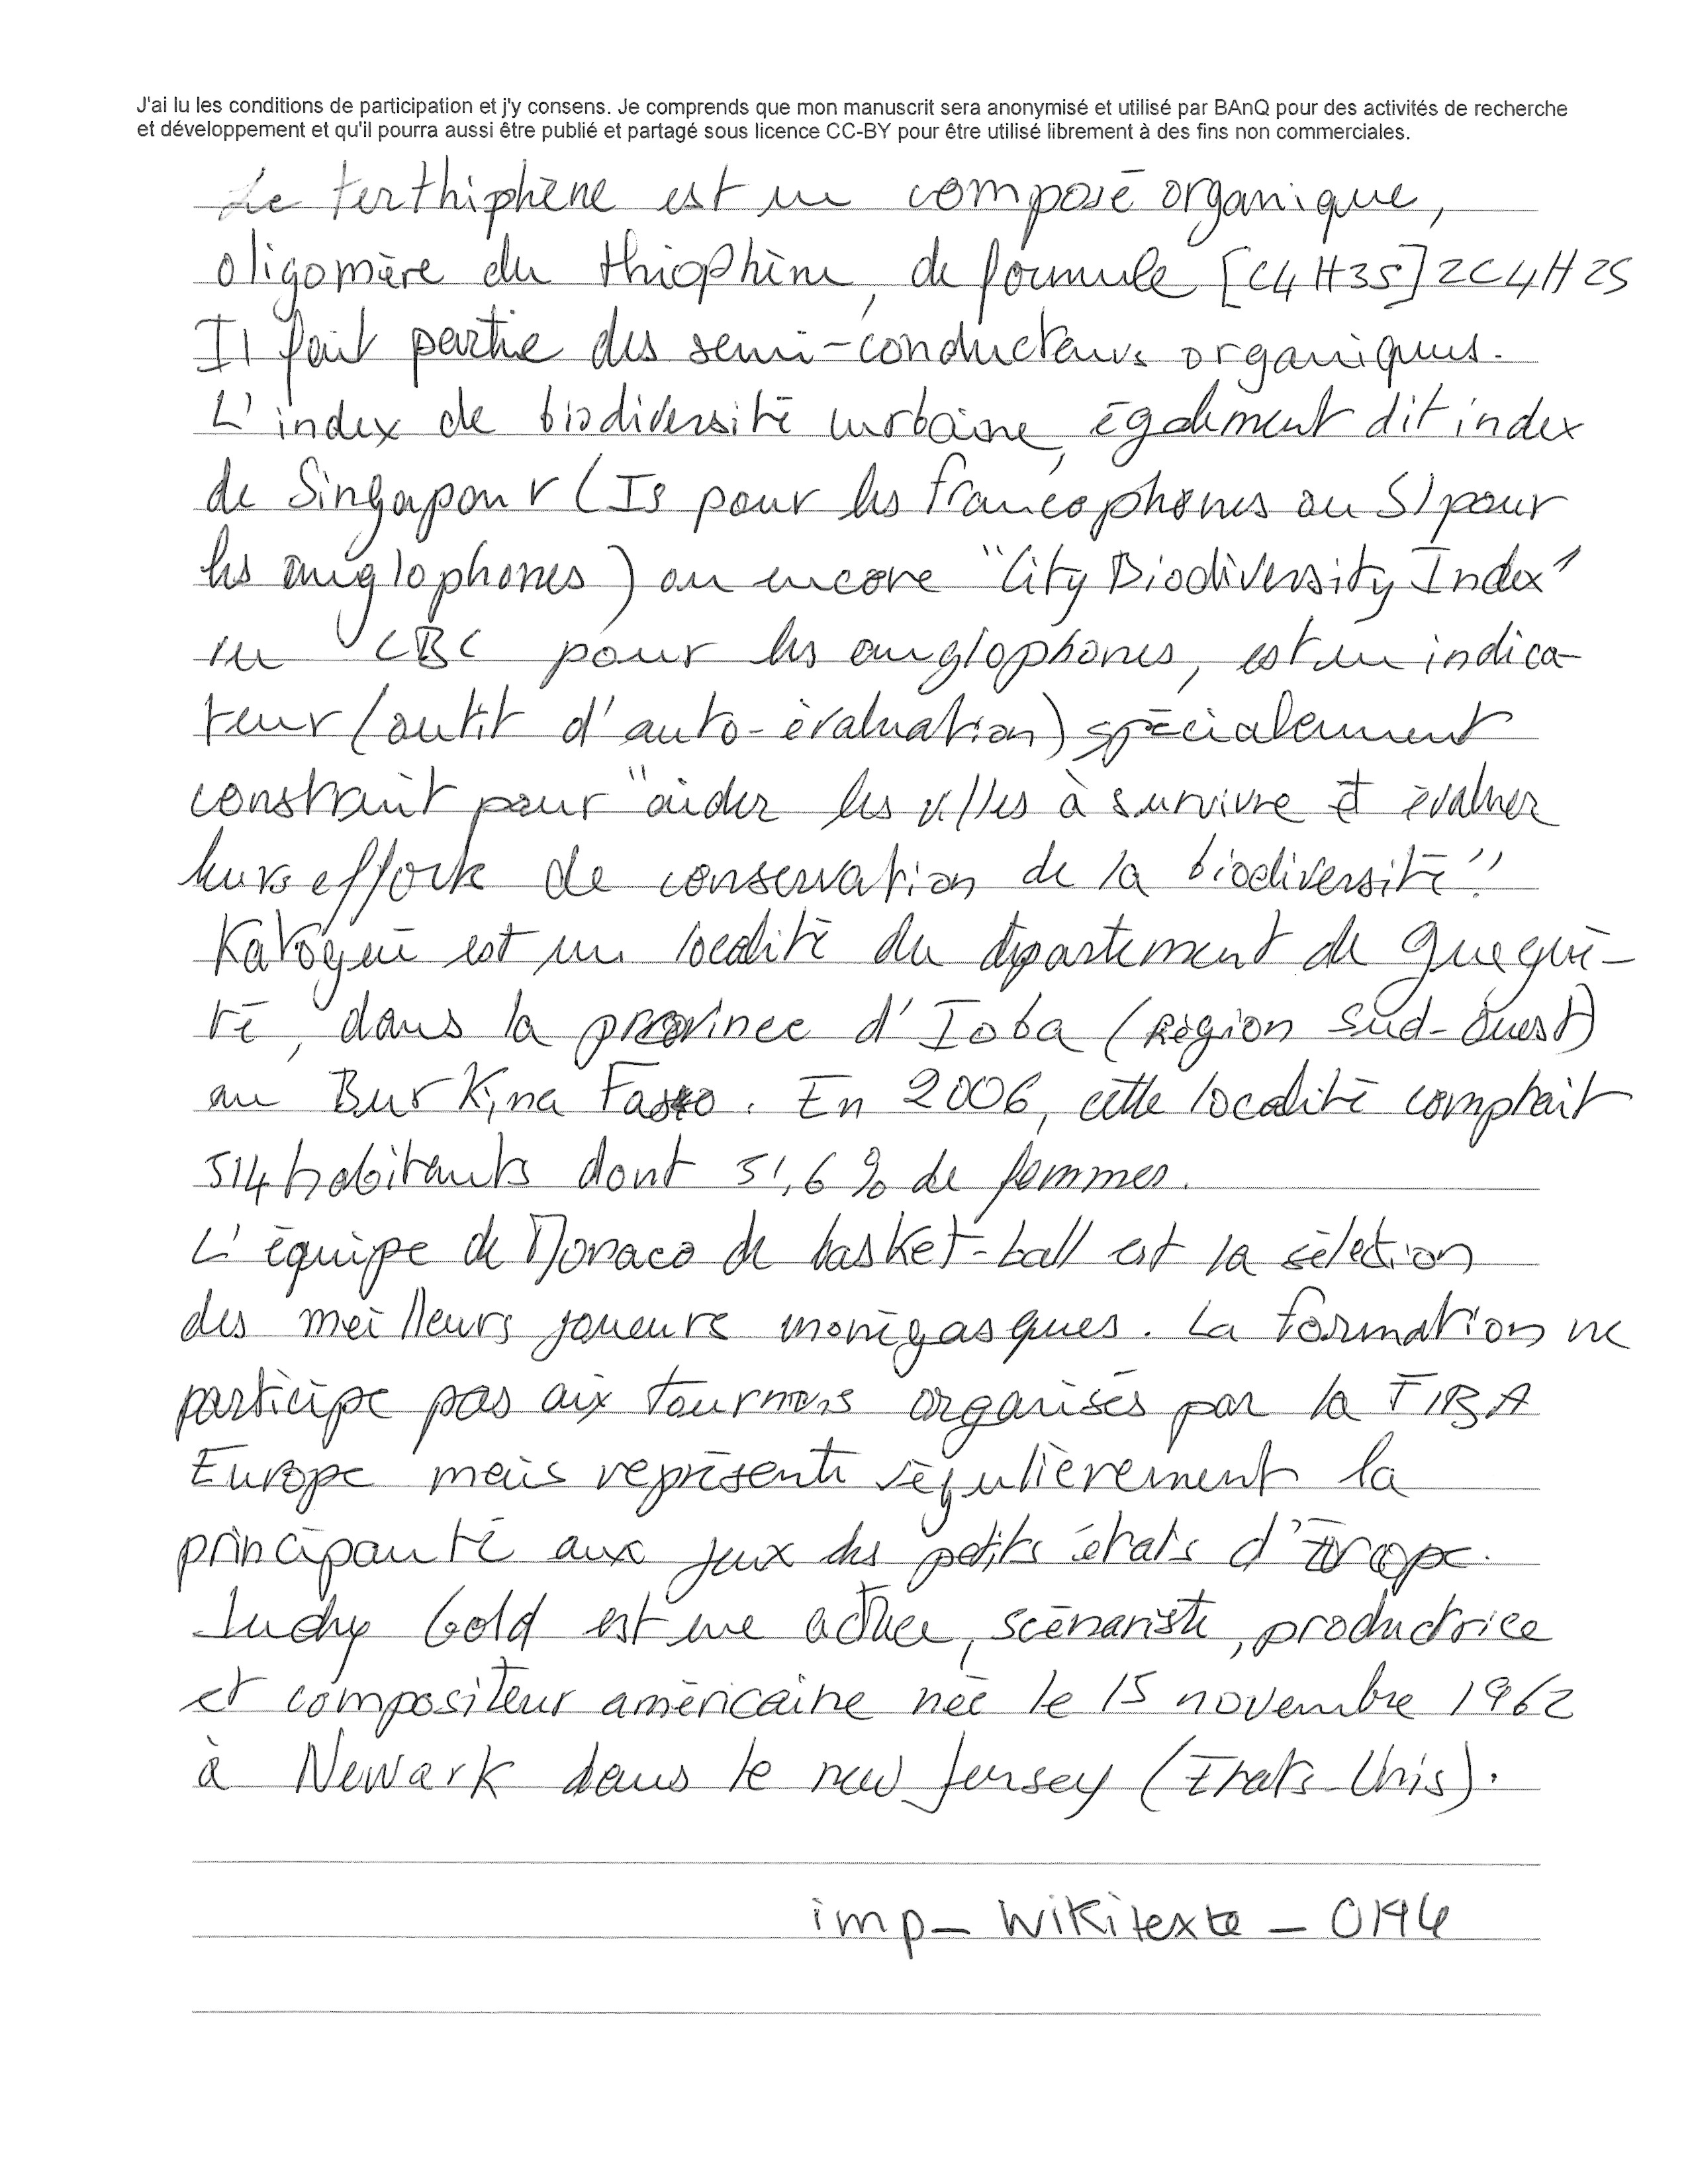 J'ai lu les conditions de participation et j'y consens. Je comprends que mon manuscrit sera anonymisé et utilisé par BAnQ pour des activités de recherche
et développement et qu'il pourra aussi être publié et partagé sous licence CC-BY pour être utilisé librement à des fins non commerciales.
Le terthiphène est un composé organique,
oligomère du thiophène, de formule [C4H3S]2C4H2S
Il fait partie des semi-conducteurs organiques.
L'index de biodiversité urbaine, également dit index
de Singapour (Is pour les francophones ou SI pour
les anglophones) ou encore "City Biodiversity Index"
CBC pour les anglophones, est un indica-
teur (outit d'auto-évaluation) spécialement
construit pour "aider les villes à survivre et évaluer
leurs efforts de conservation de la biodiversité".
est un localité du département de
té, dans la province d'Ioba (Région Sud-Ouest)
au Burkina Faso. En 2006, cette localité comptait
514 habitants dont 51,6 % de femmes.
L'équipe de Monaco de basket-ball est la sélection
des meilleurs joueurs monégasques. La formation ne
participe pas aix tournois organisés par la FIBA
Europe mais représente régulièrement la
principauté aux jeux des petits états d'Europe.
Judy Gold est une actrice, scénariste, productrice
et compositeur américaine née le 15 novembre 1962
à Newark dans le new Jersey (Etats-Unis).
imp_ Wikitexte _ 0194